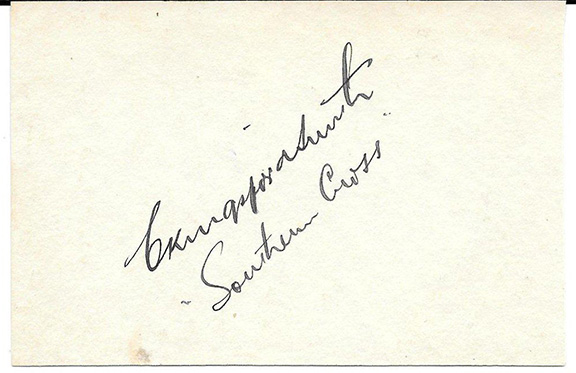 CKingsfordSmith
"Southern Cross"